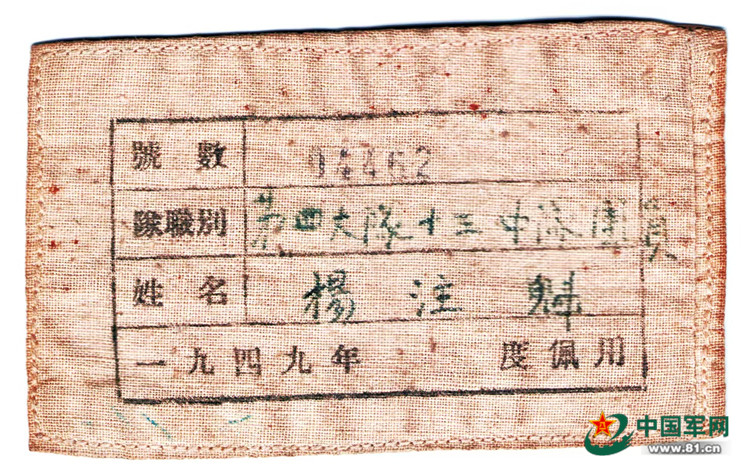 號數 04462
隊職別 第四大隊十三中隊團員
姓名 楊注魁
一九四九年 度佩用
中国军网
www.81.cn